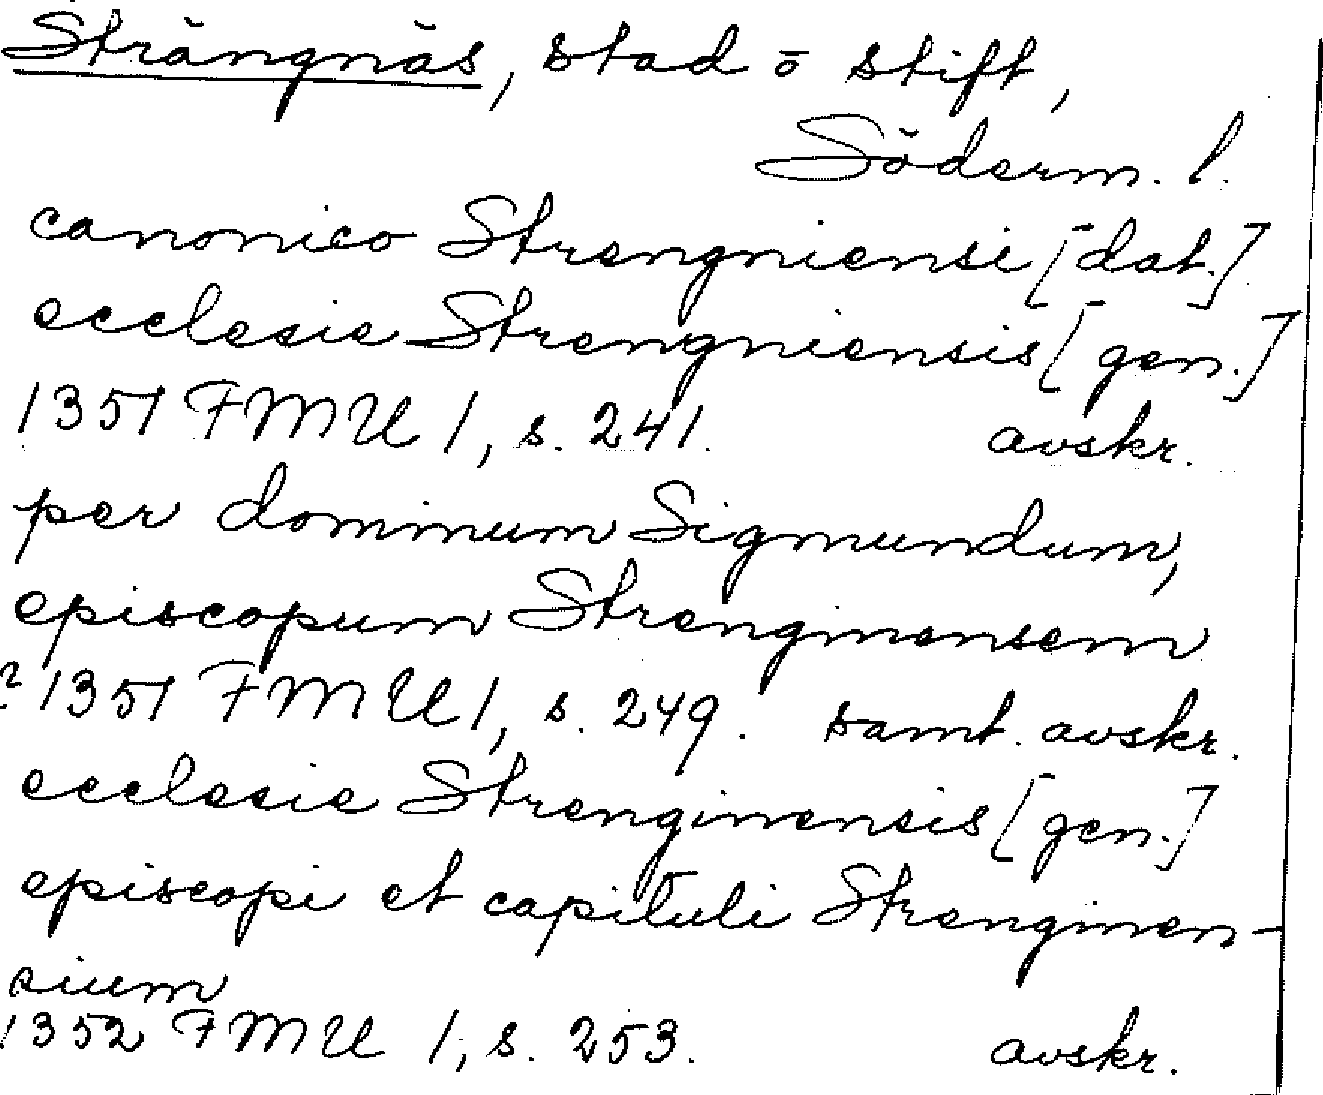 Strängnäs, stad ō stift,
Söderm. l.
canonico Strengniensi [dat.]
ecclesie Strengniensis [gen.]
1351 FMU 1, s. 241. avskr.
per dominum Sigmundum,
episcopum Strenginensem
? 1351 FMU 1, s. 249. samt. avskr.
ecclesie Strenginensis [gen.]
episcopi et capituli Strenginen-
sium
1352 FMU 1, s. 253. avskr.